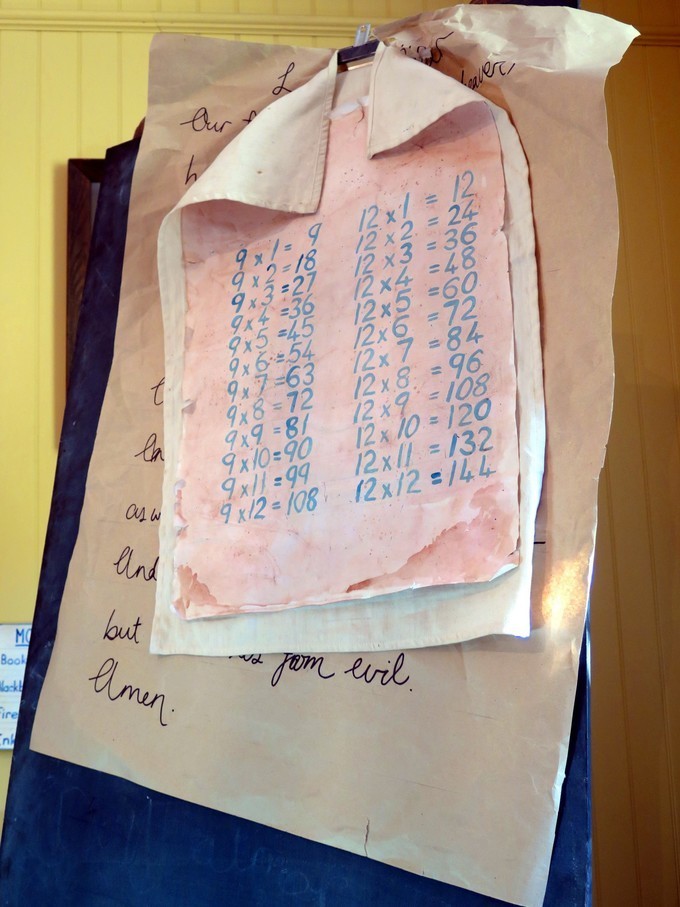 Our
heaven,
9 x 1 = 9
9 x 2 = 18
9 x 3 = 27
9 x 4 = 36
9 x 5 = 45
9 x 6 = 54
9 x 7 = 63
9 x 8 = 72
9 x 9 = 81
9 x 10 = 90
9 x 11 = 99
9 x 12 = 108
12 x 1 = 12
12 x 2 = 24
12 x 3 = 36
12 x 4 = 48
12 x 5 = 60
12 x 6 = 72
12 x 7 = 84
12 x 8 = 96
12 x 9 = 108
12 x 10 = 120
12 x 11 = 132
12 x 12 = 144
as w
And
but us from evil.
Amen.
MO
Book
lackb
Fire
Ink